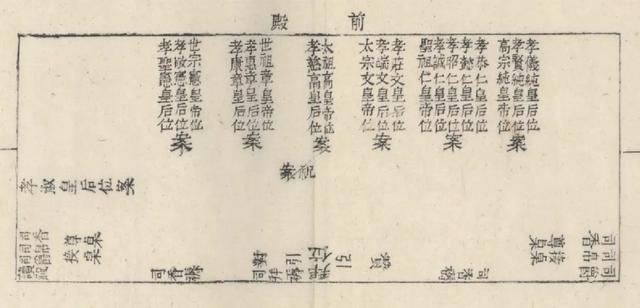 前殿
孝儀純皇后位
孝賢純皇后位
高宗純皇帝位
案
孝恭仁皇后位
孝懿仁皇后位
孝昭仁皇后位
孝誠仁皇后位
聖祖仁皇帝位
案
孝莊文皇后位
孝端文皇后位
太宗文皇帝位
案
太祖高皇帝位
孝慈高皇后位
世祖章皇帝位
孝惠章皇后位
孝康章皇后位
案
世宗憲皇帝位
孝敬憲皇后位
孝聖憲皇后位
案
祝案
孝淑皇后位案
司帛
司香
接桌
尊桌
司香褥
贊
引
引
拜褥
對
司
司香褥
尊桌
接桌